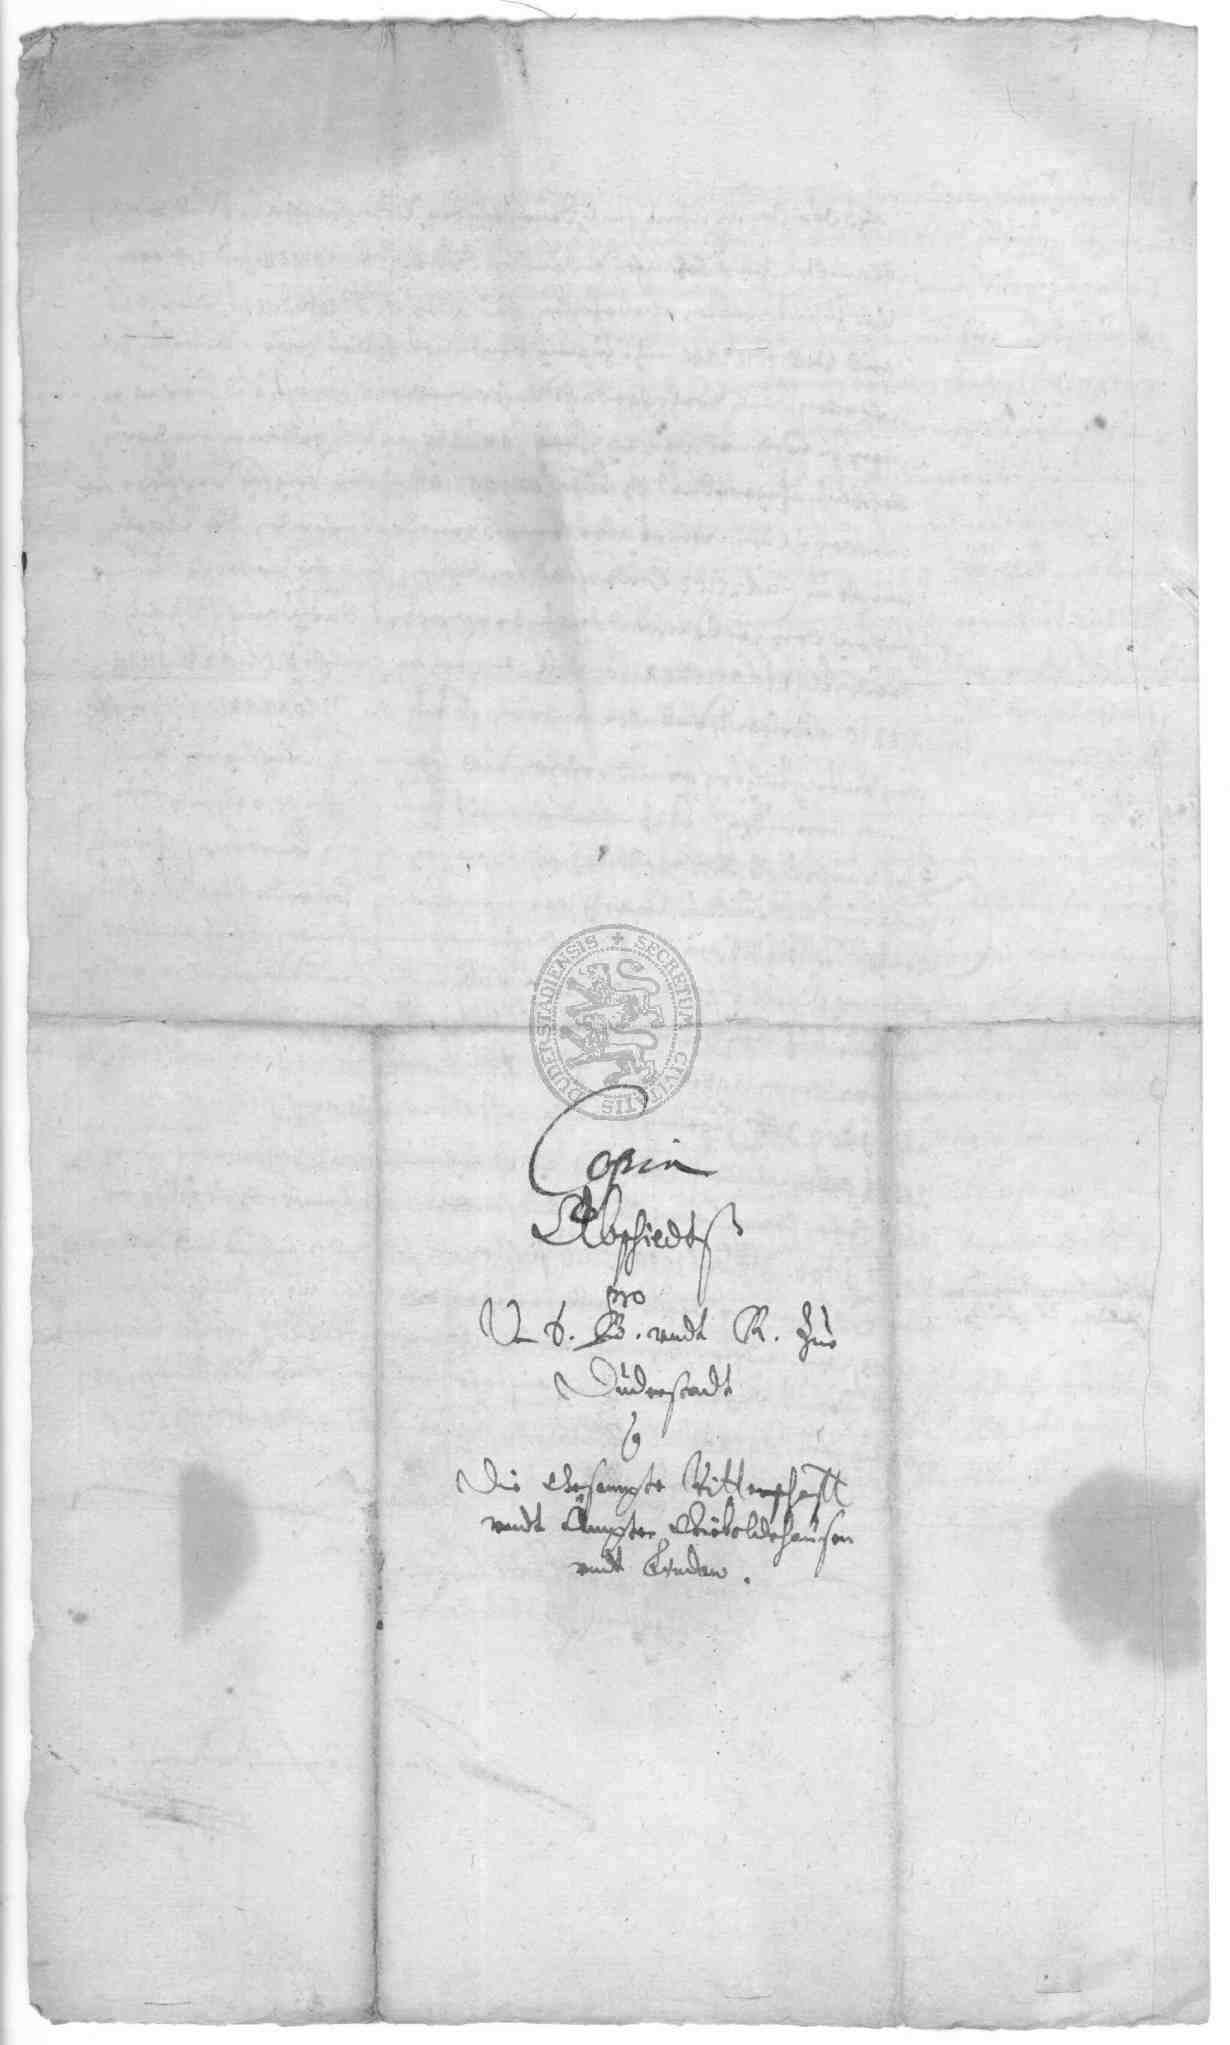 SECRETUM CIVITATIS DUDERSTADIENSIS
Copia
Abschiedtß
pro
B. vndt R. zue
Duderstadt
Die Gesampte Ritterschafft
vndt Ämpter Gieboldehausen
vndt Lindaw.